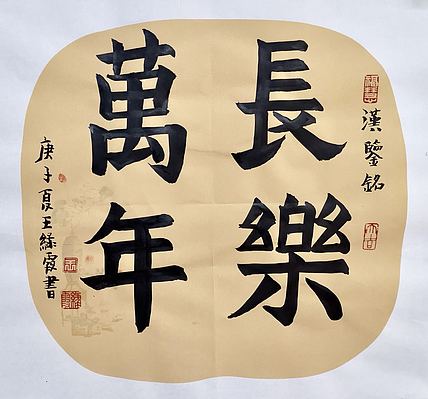 長樂
萬年
漢鑒銘
庚子夏王綠霞書